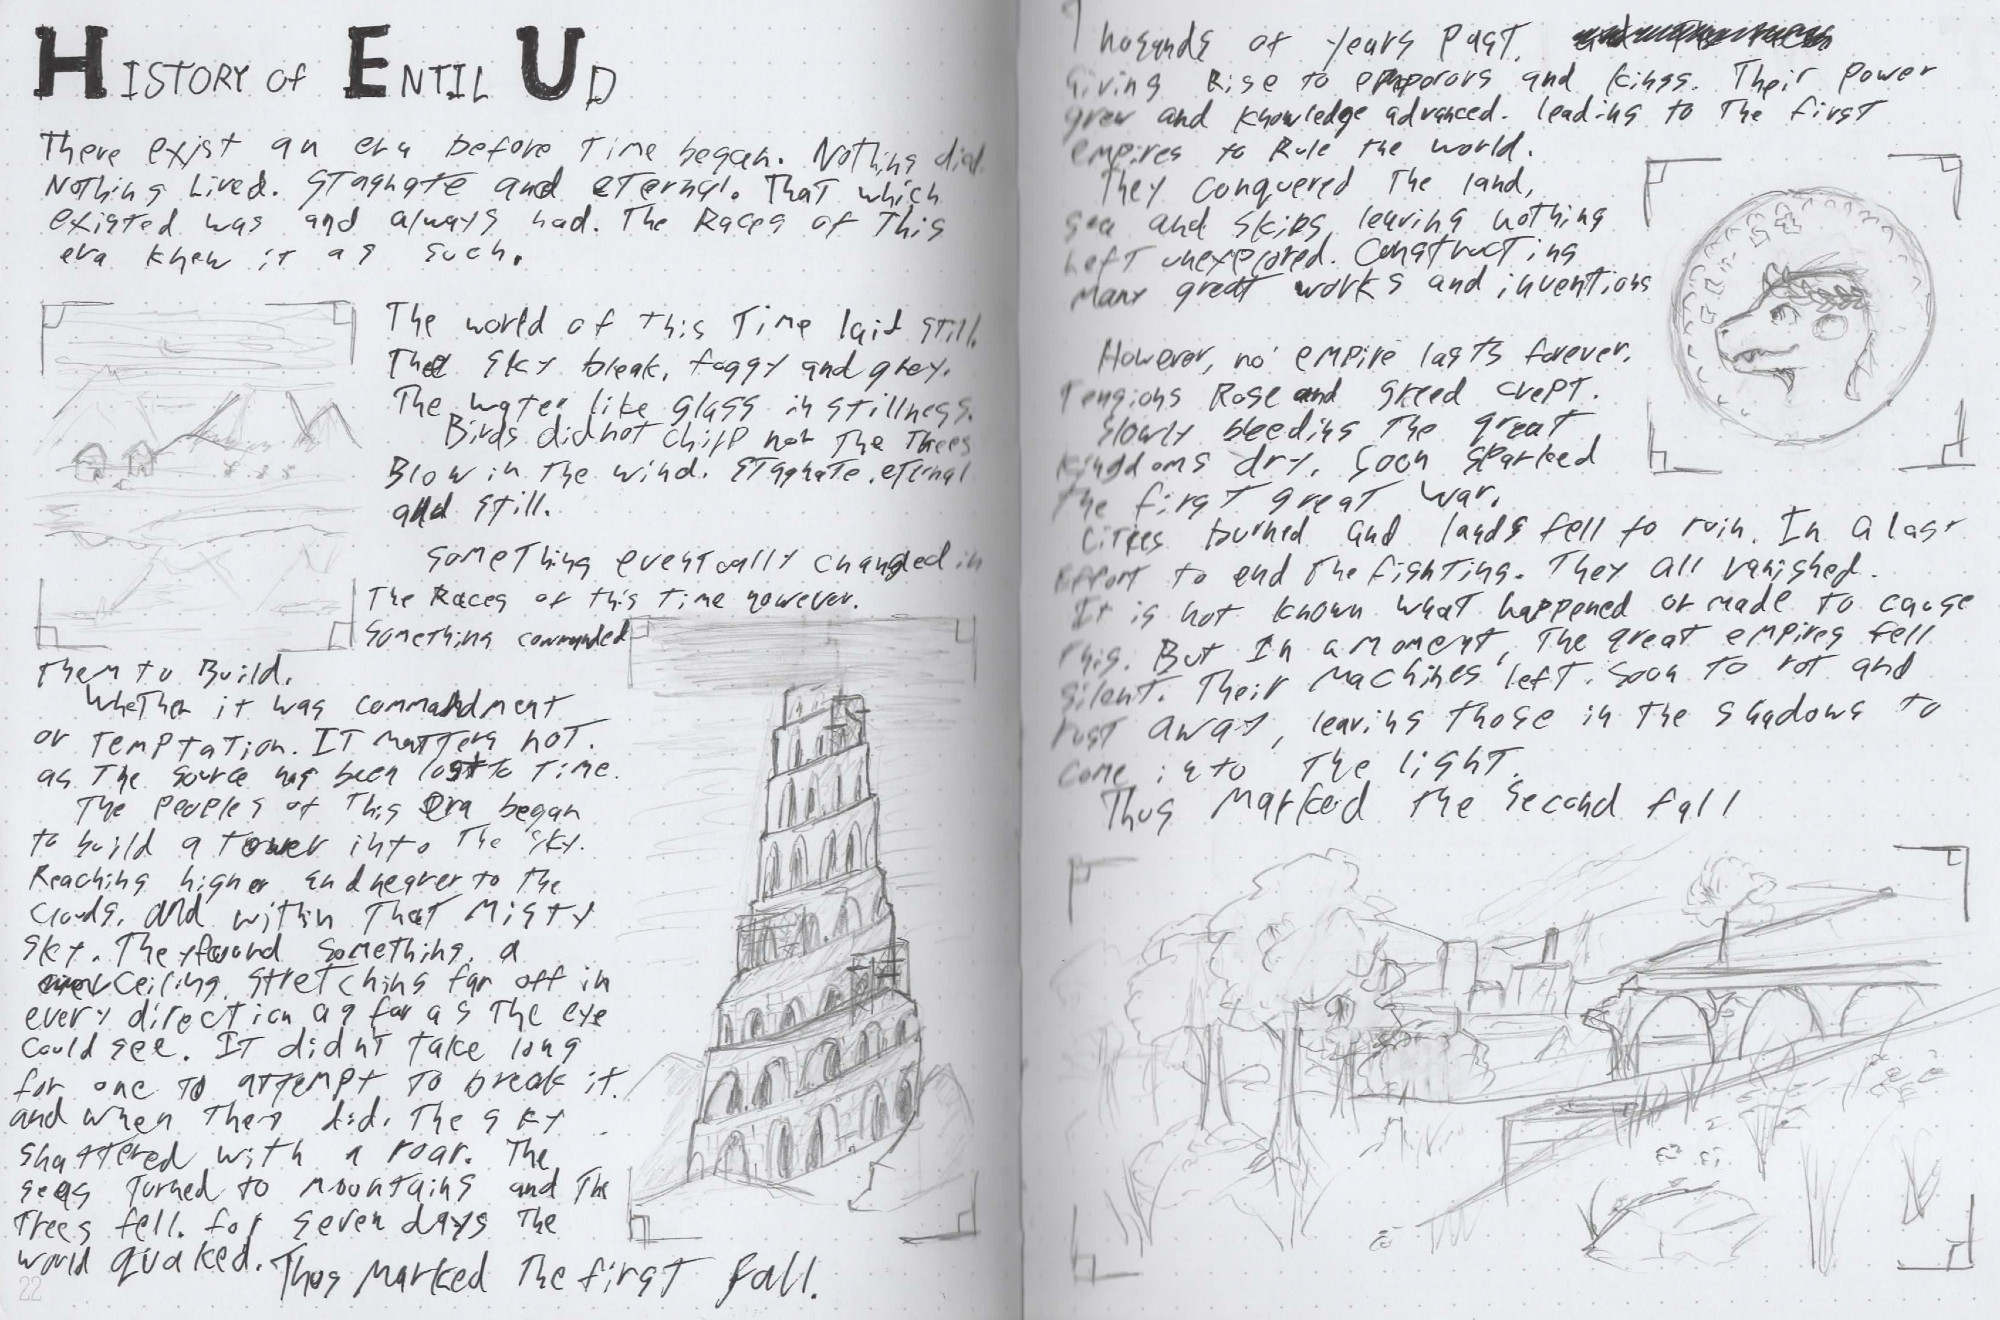 HISTORY of ENTIL UD
There exist an era before Time began. Nothing died
Nothing Lived. Stagnate and eternal. That which
existed was and always had. The Races of This
era knew it as such.
The world of this Time laid still.
The sky bleak, foggy and grey.
The water like glass in stillness.
Birds did not chirp nor The Trees
Blow in The wind. Stagnate, eternal
and still.
Something eventually changed in
The Races of this Time however.
Something commanded
Them to Build.
Whether it was commandment
or Temptation. It matters not.
as The source has been lost to Time.
The Peoples of This Era began
to build a tower into The sky.
Reaching higher and nearer to the
clouds. and within That misty
sky. They found something, a
ceiling stretching far off in
every direction as far as The eye
could see. It didn't take long
for one To attempt To break it.
and when They did. The sky
shattered with a roar. The
seas Turned to mountains and The
Trees fell. for seven days The
world quaked. Thus Marked The first fall.
22
Thousands of years Past.
Giving Rise to emporors and kings. Their Power
grew and knowledge advanced. leading to The first
empires to Rule the world.
They conquered The land,
sea and skies, leaving nothing
left unexplored. Constructing
Many great works and inventions
However, no empire lasts forever.
Tensions Rose and greed crept.
Slowly bleeding The great
kingdoms dry. Soon sparked
the first great war.
Cities burned and lands fell to ruin. In a last
Effort to end The fighting. They all vanished.
It is not known what happened or made to cause
This. But In a moment, The great empires fell
silent. Their Machines left. Soon to rot and
rust away, leaving those in the shadows to
come into The light.
Thus Marked the Second fall